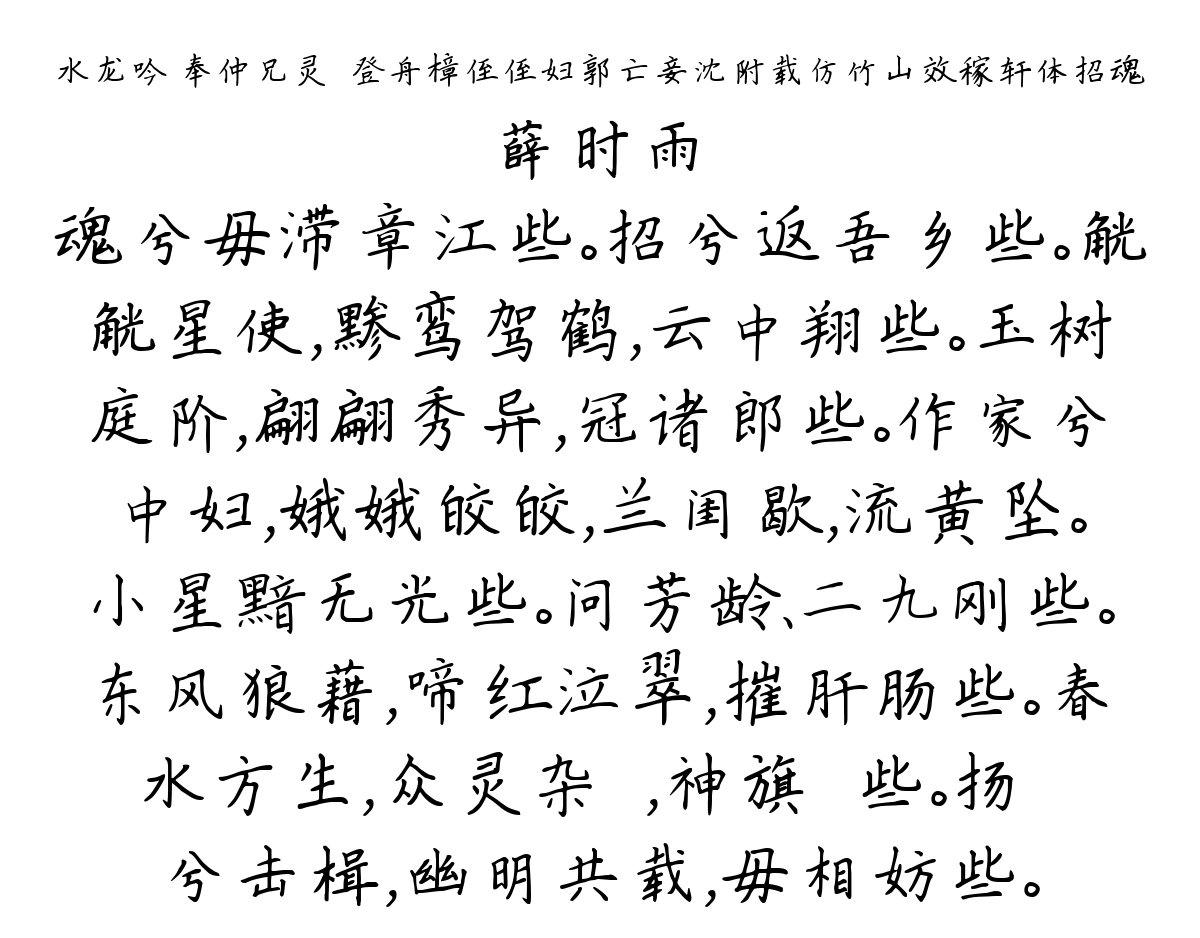 水龙吟 奉仲兄灵 登舟樟侄侄妇郭亡妾沈附载仿竹山效稼轩体招魂
薛时雨
魂兮毋滞章江些。招兮返吾乡些。觥
觥星使,黪鸾驾鹤,云中翔些。玉树
庭阶,翩翩秀异,冠诸郎些。作家兮
中妇,娥娥皎皎,兰闺歇,流黄坠。
小星黯无光些。问芳龄、二九刚些。
东风狼藉,啼红泣翠,摧肝肠些。春
水方生,众灵杂 ,神旗 些。扬
兮击楫,幽明共载,毋相妨些。